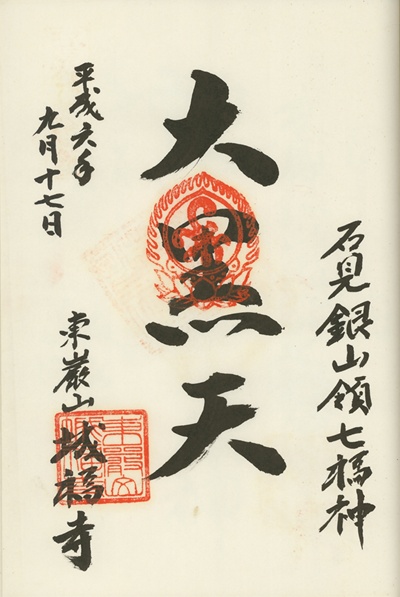 石見銀山領七福神
大黒天
平成六年
九月十七日
東巌山
城福寺